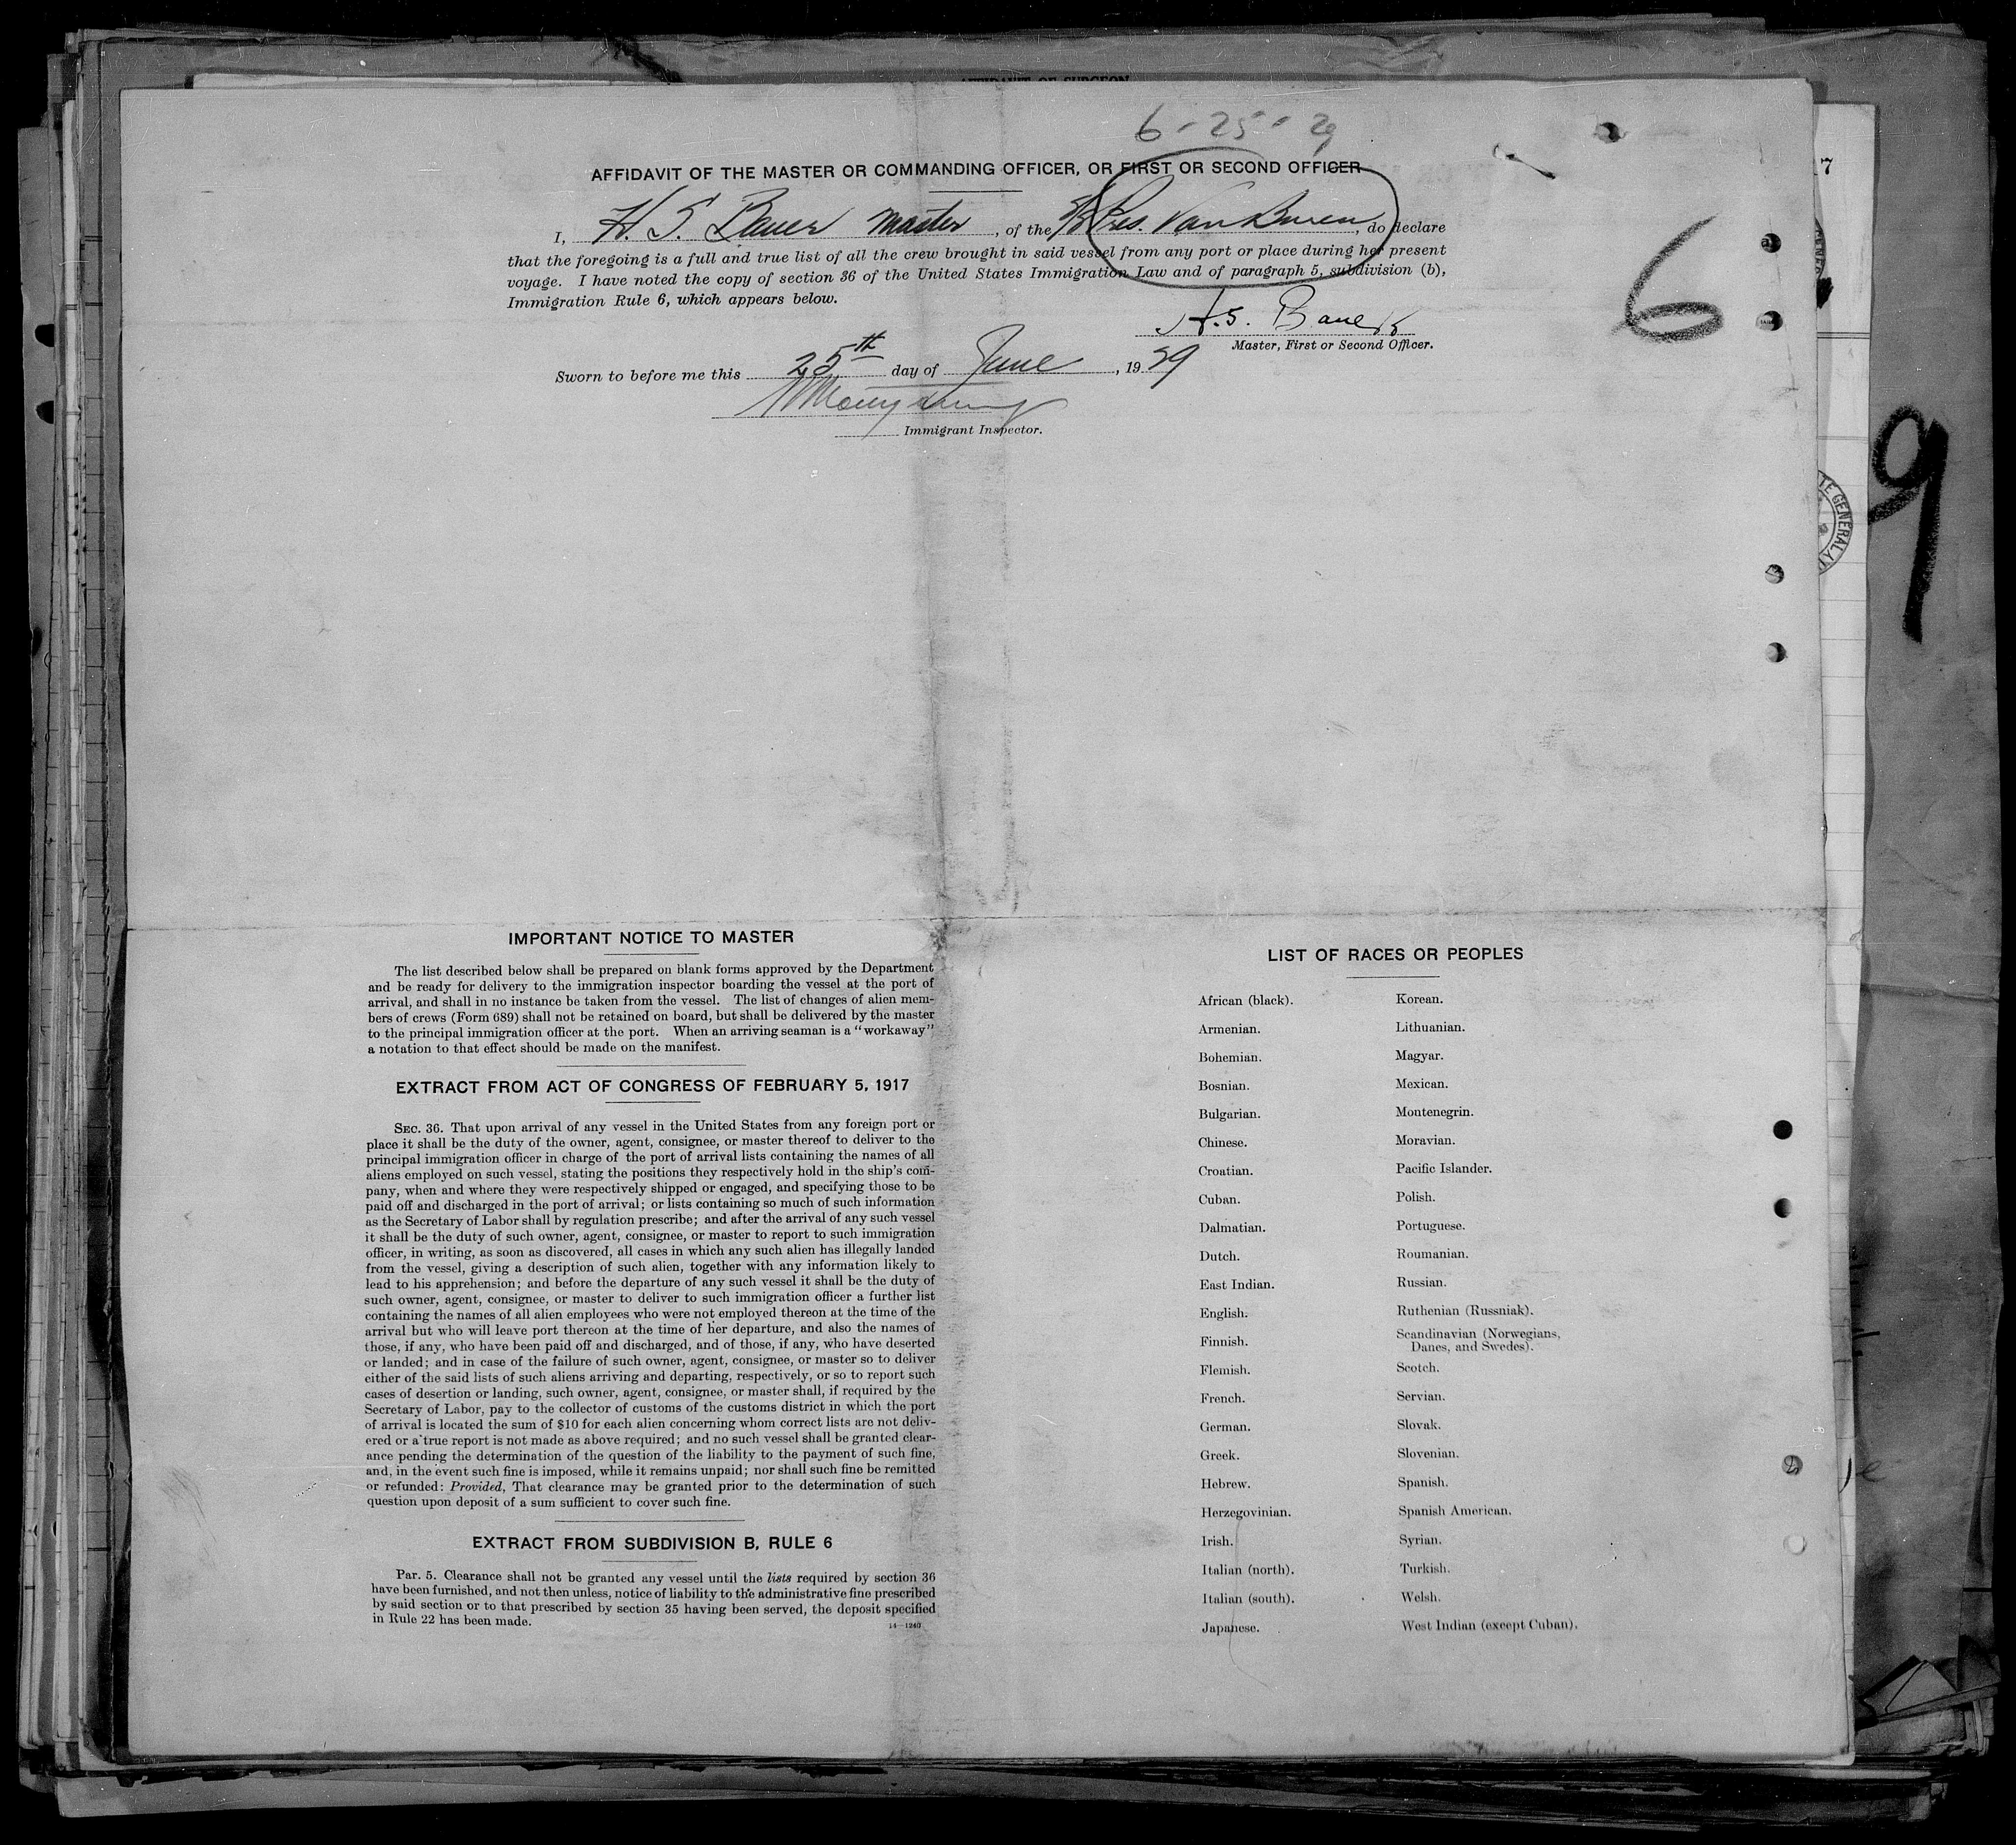 AFFIDAVIT OF SURGEON
6-25-29
AFFIDAVIT OF THE MASTER OR COMMANDING OFFICER, OR FIRST OR SECOND OFFICER
I, H. S. Bauer Master, of the Pres. Van Buren, do declare
that the foregoing is a full and true list of all the crew brought in said vessel from any port or place during her present
voyage. I have noted the copy of section 36 of the United States Immigration Law and of paragraph 5, subdivision (b),
Immigration Rule 6, which appears below.
6
H. S. Bauer
Master, First or Second Officer.
Sworn to before me this 25th day of June, 1929
Immigrant Inspector.
7
9
TE GENERAL
IMPORTANT NOTICE TO MASTER
The list described below shall be prepared on blank forms approved by the Department
and be ready for delivery to the immigration inspector boarding the vessel at the port of
arrival, and shall in no instance be taken from the vessel. The list of changes of alien mem-
bers of crews (Form 689) shall not be retained on board, but shall be delivered by the master
to the principal immigration officer at the port. When an arriving seaman is a "workaway"
a notation to that effect should be made on the manifest.
EXTRACT FROM ACT OF CONGRESS OF FEBRUARY 5, 1917
SEC. 36. That upon arrival of any vessel in the United States from any foreign port or
place it shall be the duty of the owner, agent, consignee, or master thereof to deliver to the
principal immigration officer in charge of the port of arrival lists containing the names of all
aliens employed on such vessel, stating the positions they respectively hold in the ship's com-
pany, when and where they were respectively shipped or engaged, and specifying those to be
paid off and discharged in the port of arrival; or lists containing so much of such information
as the Secretary of Labor shall by regulation prescribe; and after the arrival of any such vessel
it shall be the duty of such owner, agent, consignee, or master to report to such immigration
officer, in writing, as soon as discovered, all cases in which any such alien has illegally landed
from the vessel, giving a description of such alien, together with any information likely to
lead to his apprehension; and before the departure of any such vessel it shall be the duty of
such owner, agent, consignee, or master to deliver to such immigration officer a further list
containing the names of all alien employees who were not employed thereon at the time of the
arrival but who will leave port thereon at the time of her departure, and also the names of
those, if any, who have been paid off and discharged, and of those, if any, who have deserted
or landed; and in case of the failure of such owner, agent, consignee, or master so to deliver
either of the said lists of such aliens arriving and departing, respectively, or so to report such
cases of desertion or landing, such owner, agent, consignee, or master shall, if required by the
Secretary of Labor, pay to the collector of customs of the customs district in which the port
of arrival is located the sum of $10 for each alien concerning whom correct lists are not deliv-
ered or a true report is not made as above required; and no such vessel shall be granted clear-
ance pending the determination of the question of the liability to the payment of such fine,
and, in the event such fine is imposed, while it remains unpaid; nor shall such fine be remitted
or refunded: Provided, That clearance may be granted prior to the determination of such
question upon deposit of a sum sufficient to cover such fine.
EXTRACT FROM SUBDIVISION B, RULE 6
Par. 5. Clearance shall not be granted any vessel until the lists required by section 36
have been furnished, and not then unless, notice of liability to the administrative fine prescribed
by said section or to that prescribed by section 35 having been served, the deposit specified
in Rule 22 has been made.
14—1240
LIST OF RACES OR PEOPLES
African (black).
Armenian.
Bohemian.
Bosnian.
Bulgarian.
Chinese.
Croatian.
Cuban.
Dalmatian.
Dutch.
East Indian.
English.
Finnish.
Flemish.
French.
German.
Greek.
Hebrew.
Herzegovinian.
Irish.
Italian (north).
Italian (south).
Japanese.
Korean.
Lithuanian.
Magyar.
Mexican.
Montenegrin.
Moravian.
Pacific Islander.
Polish.
Portuguese.
Roumanian.
Russian.
Ruthenian (Russniak).
Scandinavian (Norwegians,
Danes, and Swedes).
Scotch.
Servian.
Slovak.
Slovenian.
Spanish.
Spanish American.
Syrian.
Turkish.
Welsh.
West Indian (except Cuban).